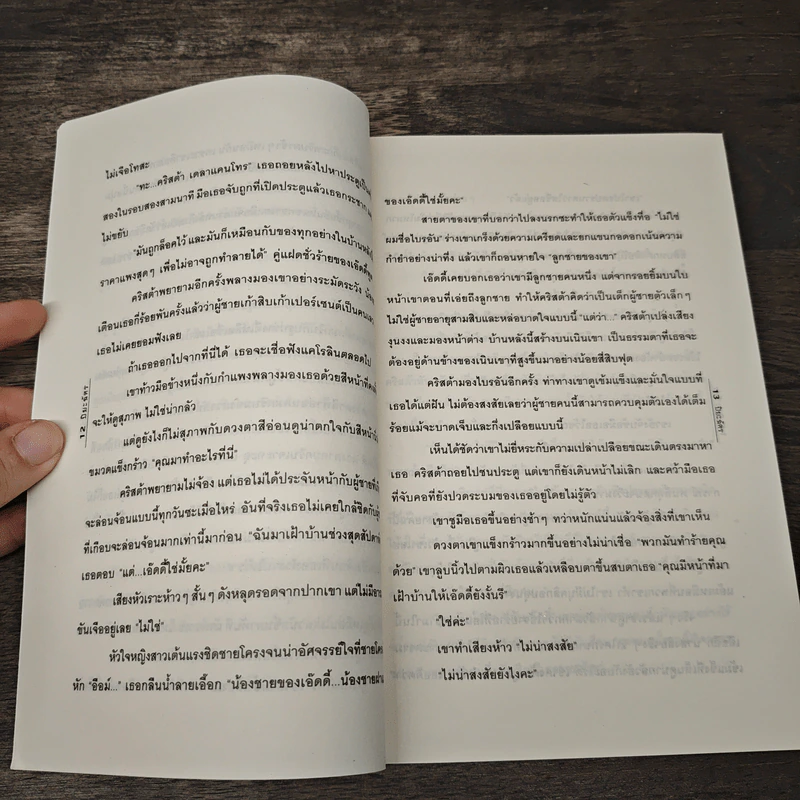 ไม่เจือโทสะ
"ทะ...คริสต้า เดลาแคนโทร" เธอถอยหลังไปหาประตูเป็น
สองในรอบสองสามนาที มือเธอจับถูกที่เปิดประตูแล้วเธอกระชาก
ไม่ขยับ
"มันถูกล็อคไว้ และมันก็เหมือนกับของทุกอย่างในบ้านหลัง
ราคาแพงสุดๆ เพื่อไม่อาจถูกทำลายได้" คู่แฝดชั่วร้ายของเอ๊ดดี้
คริสต้าพยายามอีกครั้งพลางมองเขาอย่างระมัดระวัง
เตือนเธอกี่ร้อยพันครั้งแล้วว่าผู้ชายเก้าสิบเก้าเปอร์เซนต์เป็นคน
เธอไม่เคยยอมฟังเลย
ถ้าเธอออกไปจากที่นี่ได้ เธอจะเชื่อฟังแคโรลินตลอดไป
เขาท้าวมือข้างหนึ่งกับกำแพงพลางมองเธอด้วยสีหน้าที่
จะให้ดูสุภาพ ไม่ใช่น่ากลัว
แต่ดูยังไงก็ไม่สุภาพกับดวงตาสีอ่อนดูน่าตกใจกับสีหน้า
ขมวดแข็งกร้าว "คุณมาทำอะไรที่นี่"
คริสต้าพยายามไม่จ้อง แต่เธอไม่ได้ประจันหน้ากับผู้ชายที่
จะล่อนจ้อนแบบนี้ทุกวันซะเมื่อไหร่ อันที่จริงเธอไม่เคยใกล้ชิดกับ
ที่เกือบจะล่อนจ้อนมากเท่านี้มาก่อน "ฉันมาเฝ้าบ้านช่วงสุดสัปดาห์
เธอตอบ "แต่...เอ๊ดดี้ใช่มั้ยคะ"
เสียงหัวเราะห้าวๆ สั้นๆ ดังหลุดรอดจากปากเขา แต่ไม่มี
ขันเจืออยู่เลย "ไม่ใช่"
หัวใจหญิงสาวเต้นแรงชิดชายโครงจนน่าอัศจรรย์ใจที่ชายโครง
หัก "อืมม์..." เธอกลืนน้ำลายเอื๊อก "น้องชายของเอ๊ดดี้...น้องชาย
12
ปิยะฉัตร
ของเอ๊ดดี้ใช่มั้ยคะ"
สายตาของเขาที่บอกว่าไปลงนรกซะทำให้เธอตัวแข็งทื่อ "ไม่ใช่
ผมชื่อไบรอัน" ร่างเขาเกร็งด้วยความเครียดและยกแขนกอดอกเน้นความ
กำยำอย่างน่าทึ่ง แล้วเขาก็ถอนหายใจ "ลูกชายของเขา"
เอ๊ดดี้เคยบอกเธอว่าเขามีลูกชายคนหนึ่ง แต่จากรอยยิ้มบนใบ
หน้าเขาตอนที่เอ่ยถึงลูกชาย ทำให้คริสต้าคิดว่าเป็นเด็กผู้ชายตัวเล็กๆ
ไม่ใช่ผู้ชายอายุสามสิบและหล่อบาดใจแบบนี้ "แต่ว่า..." คริสต้าเปล่งเสียง
งุนงงและมองหน้าต่าง บ้านหลังนี้สร้างบนเนินเขา เป็นธรรมดาที่เธอจะ
ต้องอยู่ด้านข้างของเนินเขาที่สูงขึ้นมาอย่างน้อยสี่สิบฟุต
คริสต้ามองไบรอันอีกครั้ง ท่าทางเขาดูเข้มแข็งและมั่นใจแบบที่
เธอได้แต่ฝัน ไม่ต้องสงสัยเลยว่าผู้ชายคนนี้สามารถควบคุมตัวเองได้เต็ม
ร้อยแม้จะบาดเจ็บและกึ่งเปลือยแบบนี้
เห็นได้ชัดว่าเขาไม่ยี่หระกับความเปล่าเปลือยขณะเดินตรงมาหา
เธอ คริสต้าถอยไปชนประตู แต่เขาก็ยังเดินหน้าไม่เลิก และคว้ามือเธอ
ที่จับคอที่ยังปวดระบมของเธออยู่โดยไม่รู้ตัว
เขาชูมือเธอขึ้นอย่างช้าๆ ทว่าหนักแน่นแล้วจ้องสิ่งที่เขาเห็น
ดวงตาเขาแข็งกร้าวมากขึ้นอย่างไม่น่าเชื่อ "พวกมันทำร้ายคุณ
ด้วย" เขาลูบนิ้วไปตามผิวเธอแล้วเหลือบตาขึ้นสบตาเธอ "คุณมีหน้าที่มา
เฝ้าบ้านให้เอ๊ดดี้ยังงั้นรึ"
"ใช่ค่ะ"
เขาทำเสียงห้าว "ไม่น่าสงสัย"
"ไม่น่าสงสัยยังไงคะ"
13
ปิยะฉัตร